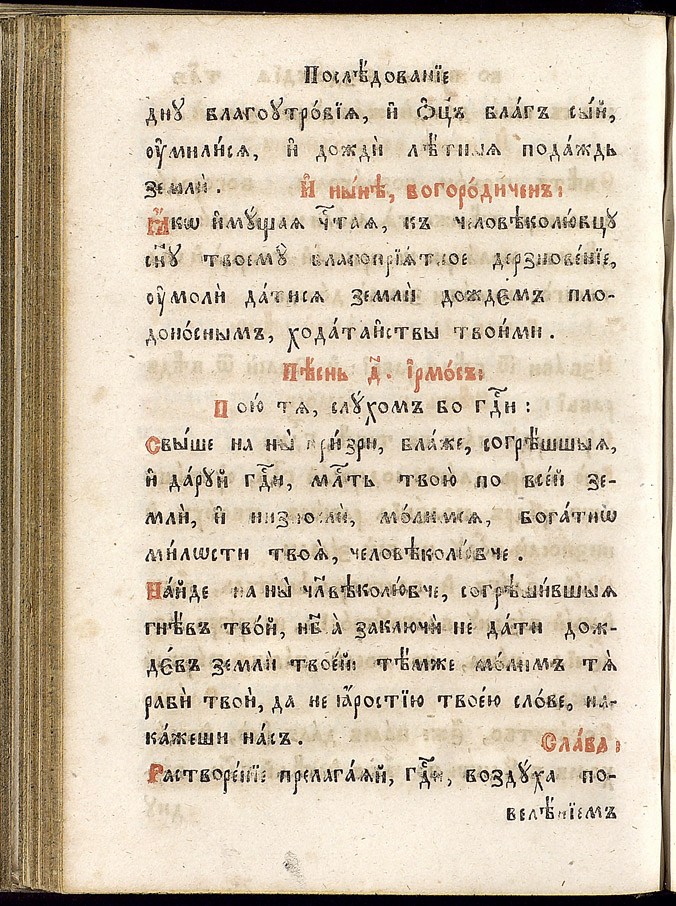 Послѣ́дованїе
днꙋ благоꙋтро́бїѧ, и҆ ѻ҆ц҃ъ бла́гъ сы́й,
ᲂу҆мили́сѧ, и҆ дожди̑ лѣ̑тныѧ пода́ждь
землѝ. И҆ ны́нѣ, богоро́диченъ:
Ꙗ҆́кѡ и҆мꙋ́щаѧ чⷭ҇таѧ, къ человѣколю́бцꙋ
сн҃ꙋ твоемꙋ̀ благопрїѧ́тное дерзнове́нїе,
ᲂу҆молѝ да́тисѧ землѝ дождє́мъ пло-
доно́снымъ, хода́тайствы твои́ми.
Пѣ́снь д҃. і҆рмо́съ:
Пою́ тѧ, слꙋ́хомъ бо гдⷭ҇и:
Свы́ше на ны̀ при́зри, бла́же, согрѣ́шшыѧ,
и҆ да́рꙋй гдⷭ҇и, млⷭ҇ть твою̀ по все́й зе-
млѝ, и҆ низпослѝ, мо́лимсѧ, бога́тыѧ
ми́лѡсти твоѧ̑, человѣколю́бче.
На́йде на ны̀ чл҃вѣколю́бче, согрѣши́вшыѧ
гнѣ́въ тво́й, нб҃а̀ заключѝ не да́ти дож-
дє́въ землѝ твое́й: тѣ́мже мо́лимъ тѧ̀
рабѝ твоѝ, да не ꙗ҆́ростїю твое́ю сло́ве, на-
ка́жеши на́съ.
Сла́ва:
Растворе́нїе прелага́ѧй, гдⷭ҇и, во́здꙋха по-
велѣ́нїемъ